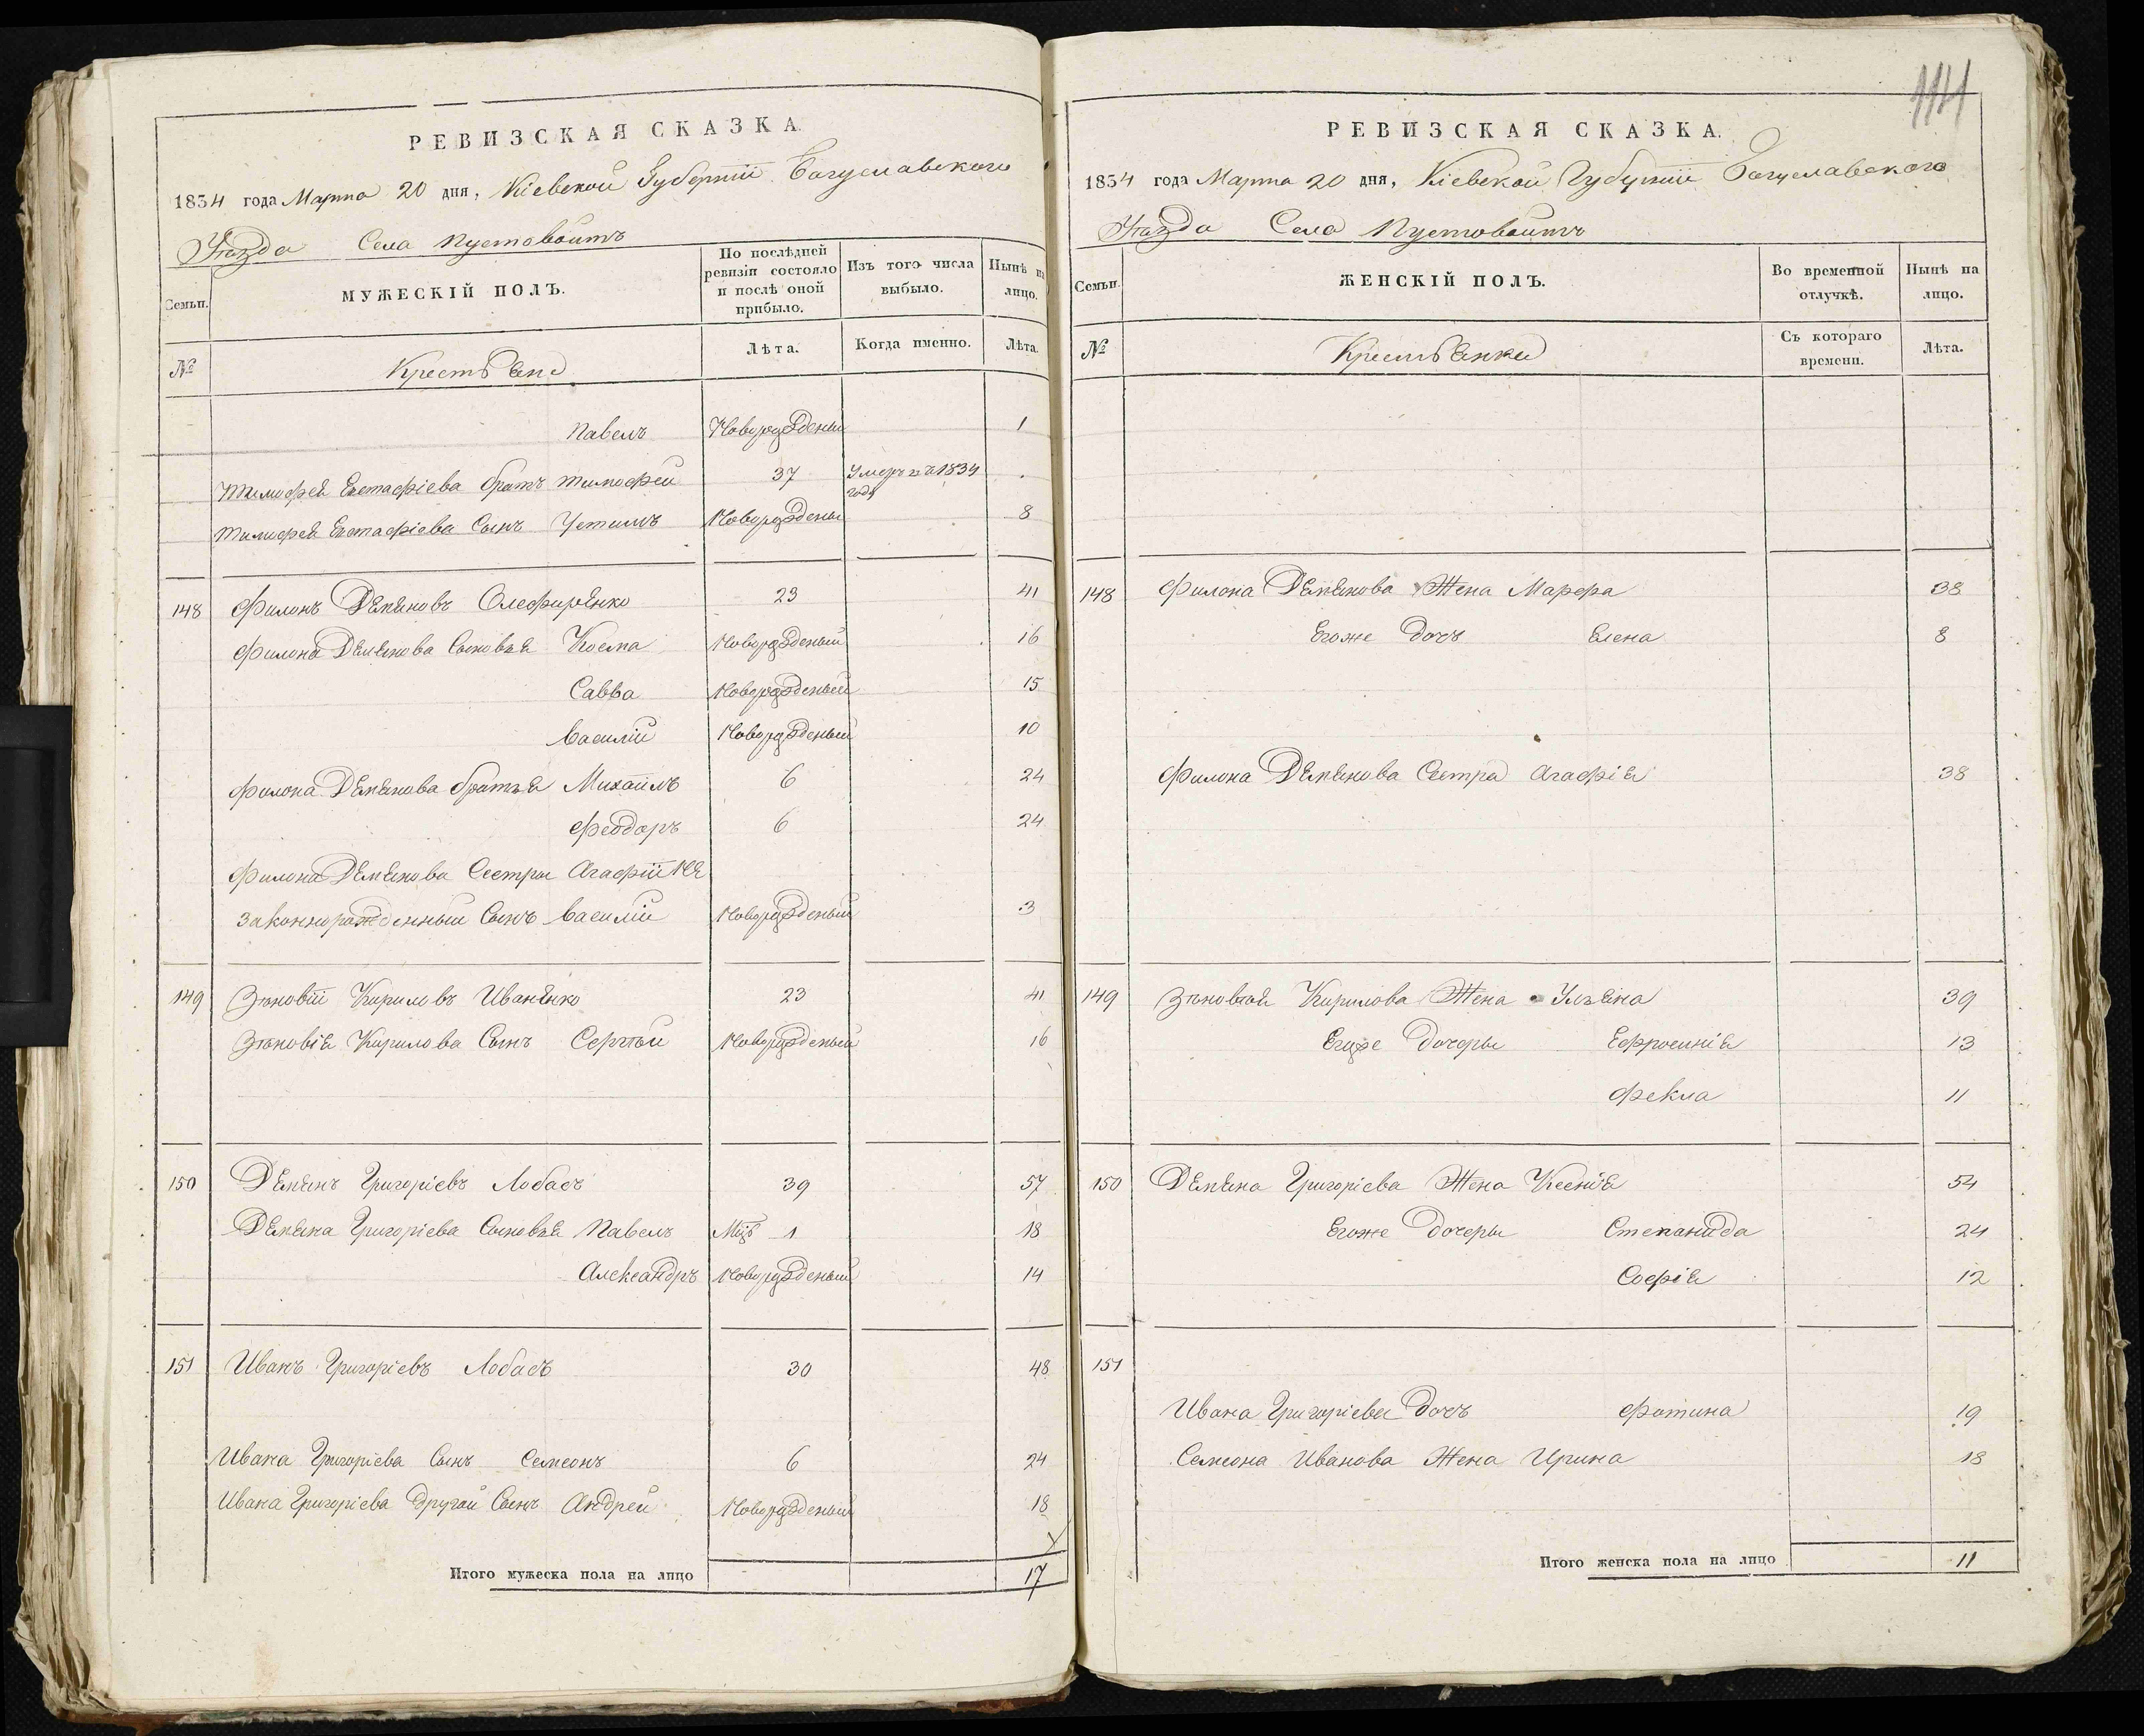 РЕВИЗСКАЯ СКАЗКА.
1834 года Марта 20 дня, Кіевской Губерніи Богуславскаго
Уѣзда Села Пустовойтъ
Семьи.
МУЖЕСКІЙ ПОЛЪ.
По послѣдней ревизіи состояло и послѣ оной прибыло.
Изъ того числа выбыло.
Нынѣ на лицо.
№
Крестьяне
Лѣта.
Когда именно.
Лѣта.
Павелъ Новорожденый 1
Тимофея Евстафіева братъ Тимофей 37 Умеръ въ 1834 года
Тимофея Евстафіева Сынъ Устимъ Новорожденый 8
148 Филонъ Демяновъ Олефиренко 23 41
Филона Демянова Сыновья Косма Новорожденый 16
Савва Новорожденый 15
Василій Новорожденый 10
Филона Демянова братья Михаилъ 6 24
Феодоръ 6 24
Филона Демянова Сестры Агафіи не
законнорожденный Сынъ Василій Новорожденый 3
149 Зѣновій Кириловъ Иваненко 23 41
Зѣновія Кирилова Сынъ Сергѣй Новорожденый 16
150 Демянъ Григоріевъ Лобасъ 39 57
Демяна Григоріева Сыновья Павелъ Мѣз 1 18
Александръ Новорожденый 14
151 Иванъ Григоріевъ Лобасъ 30 48
Ивана Григоріева Сынъ Семеонъ 6 24
Ивана Григоріева другой Сынъ Андрей Новорожденый 18
Итого мужеска пола на лицо 17
1141
РЕВИЗСКАЯ СКАЗКА.
1834 года Марта 20 дня, Кіевской Губерніи Богуславскаго
Уѣзда Села Пустовойтъ
Семьи.
ЖЕНСКІЙ ПОЛЪ.
Во временной отлучкѣ.
Нынѣ на лицо.
№
Крестьянки
Съ котораго времени.
Лѣта.
148 Филона Демянова Жена Марфа 38
Егоже дочь Елена 8
Филона Демянова Сестра Агафія 38
149 Зѣновія Кирилова Жена Ульяна 39
Егоже дочеры Ефросинія 13
Фекла 11
150 Демяна Григоріева Жена Ксенія 54
Егоже дочеры Степанида 24
Софія 12
151
Ивана Григоріева дочь Фотина 19
Семеона Иванова Жена Ирина 18
Итого женска пола на лицо 11